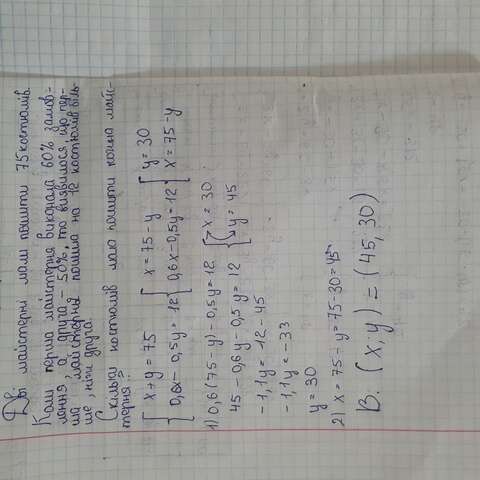 Дві майстерні мали пошити 75 костюмів
Коли перша майстерня виконала 60% замов-
лення, а друга – 50%, то виявилося, що пер-
ша майстерня пошила на 12 костюмів біль-
ше, ніж друга.
Скільки костюмів мала пошити кожна майс-
терня?
{ x + y = 75 { x = 75 - y { y = 30
{ 0,6x - 0,5y = 12 { 0,6x - 0,5y = 12 { x = 75 - y
1) 0,6(75 - y) - 0,5y = 12 { x = 30
45 - 0,6y - 0,5y = 12 { y = 45
-1,1y = 12 - 45
-1,1y = -33
y = 30
2) x = 75 - y = 75 - 30 = 45
В: (x; y) = (45; 30)